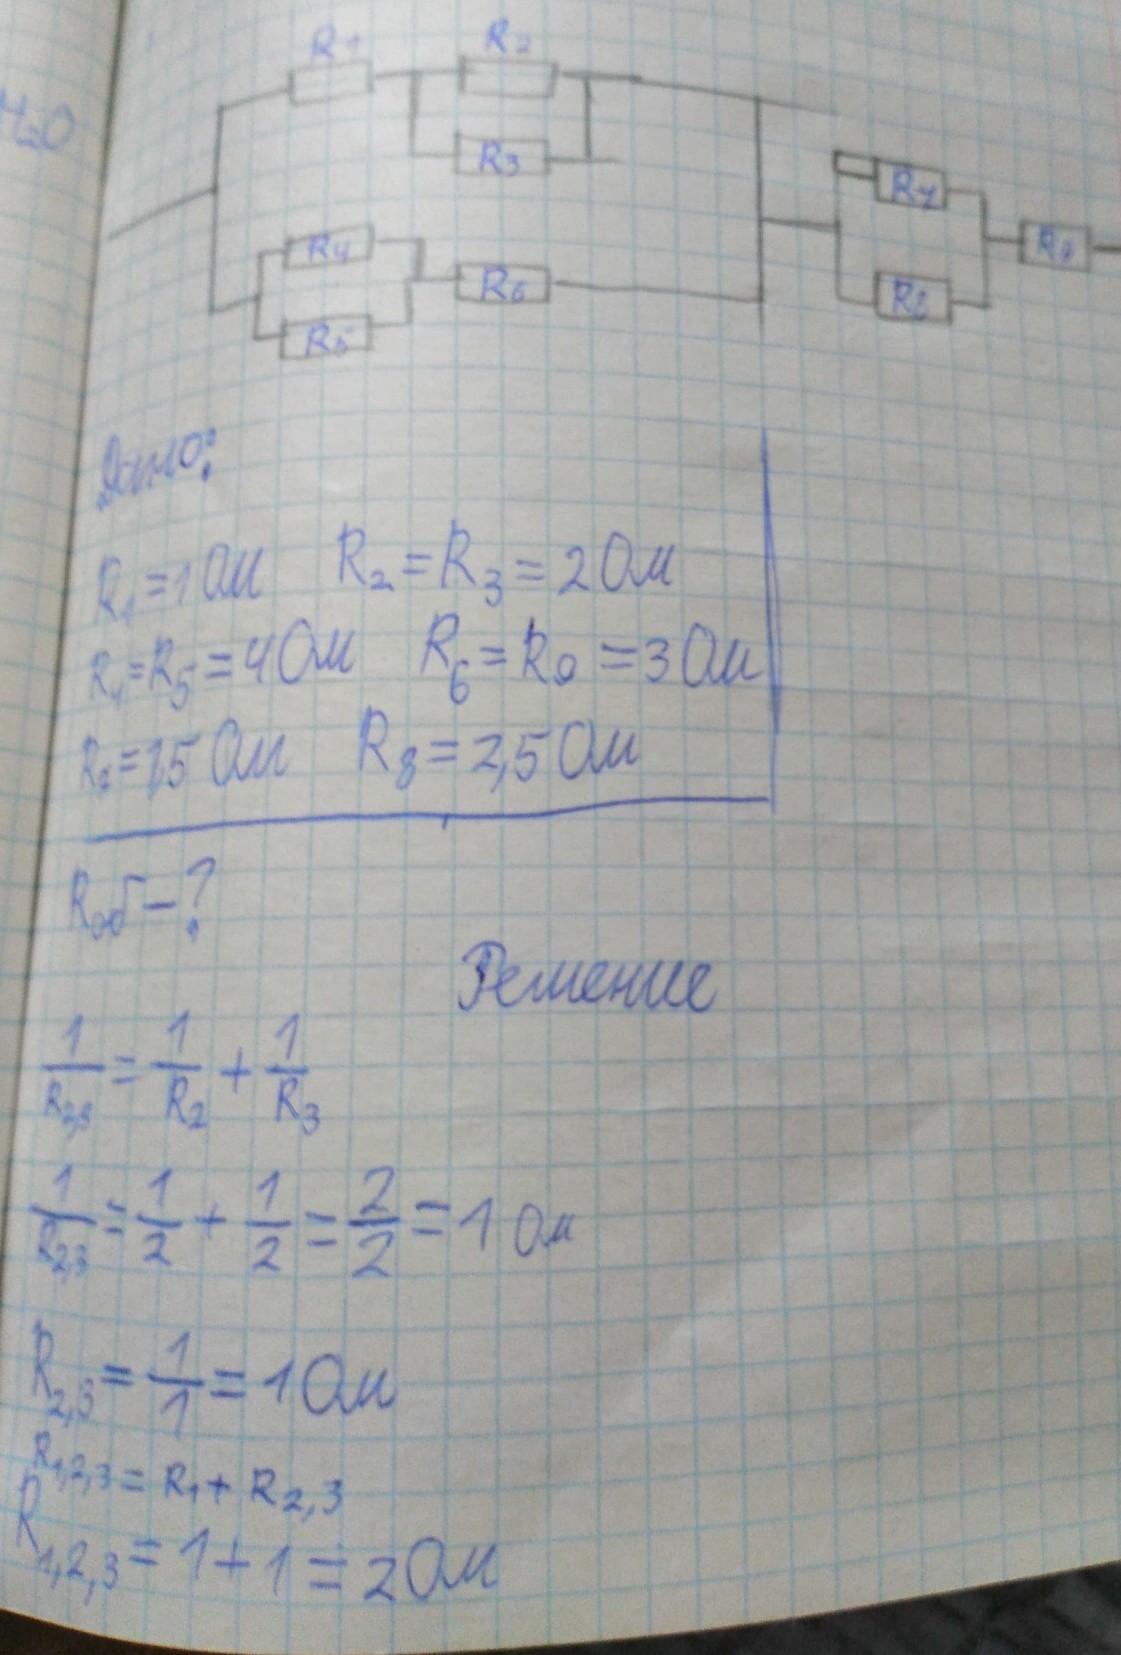 H₂O
R₁ R₂
R₃
R₇
R₄
R₉
R₆
R₈
R₅
Дано:
R₁=1 Ом R₂=R₃=2 Ом
R₄=R₅=4 Ом R₆=R₉=3 Ом
=1,5 Ом R₈=2,5 Ом
Rоб-?
Решение
1/R₂,₃ = 1/R₂ + 1/R₃
1/R₂,₃ = 1/2 + 1/2 = 2/2 = 1 Ом
R₂,₃ = 1/1 = 1 Ом
R₁,₂,₃ = R₁ + R₂,₃
R₁,₂,₃ = 1+1 = 2 Ом